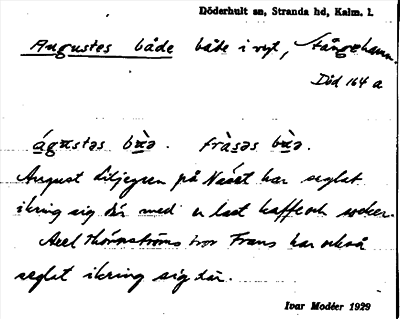 Döderhult sn, Stranda hd, Kalm. l.
Augustes både båle i vyt, Stångehamn.
Död 164 a
ágɷstəs bɷ̀ə. fràsəs bɷ̀ə.
August Liljegren på Näset har seglat
ikring sig där med en last kaffe och socker.
Axel Thörnströms bror Frans har också
seglat ikring sig där.
Ivar Modéer 1929